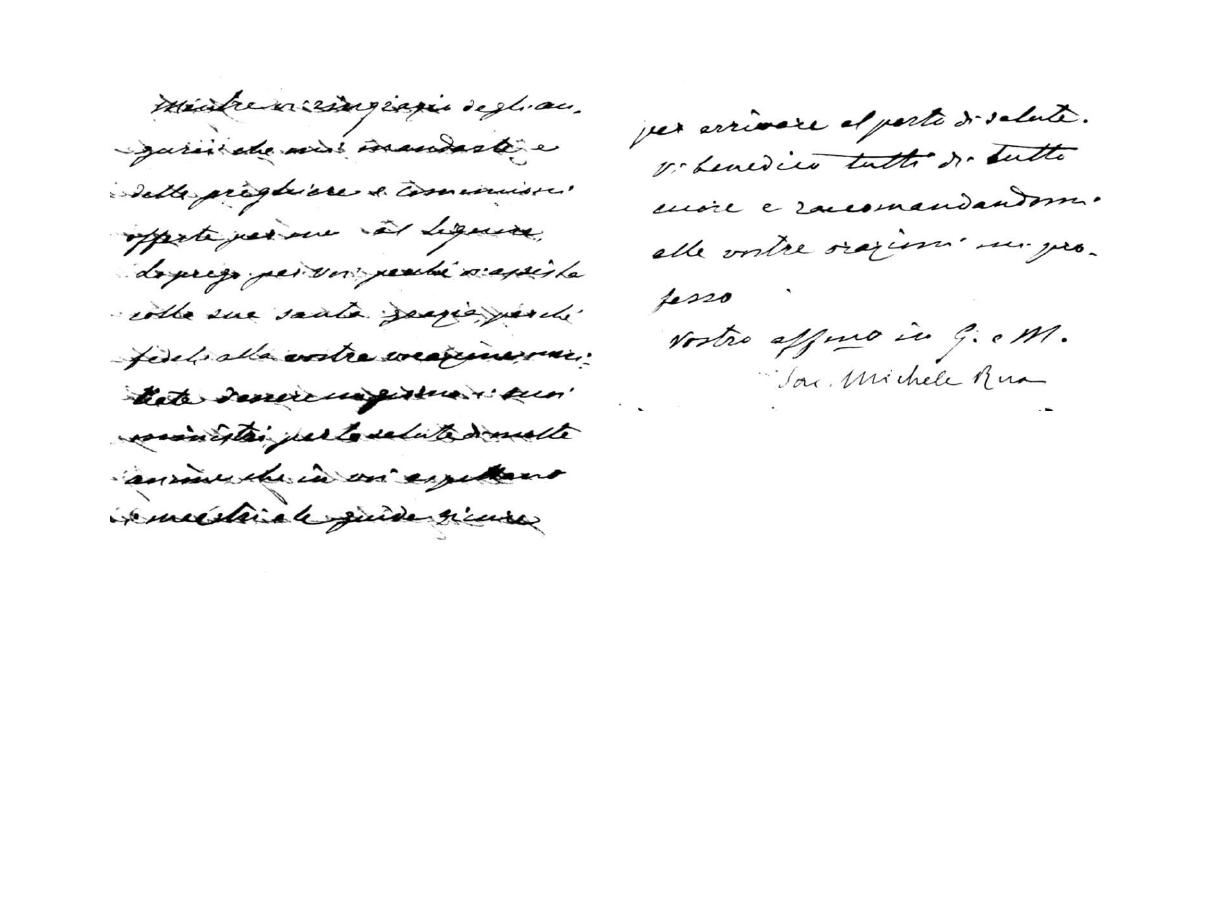 Mentre vi ringrazio degli au-
gurii che mi mandaste e
delle preghiere e comunioni
offerte per me al Signore,
Lo prego per voi perché v'assista
colla sua santa grazia, perché
fedeli alla vostra vocazione meri-
tiate d'essere un giorno i suoi
ministri per la salute di molte
anime che in voi aspettano
i maestri e le guide sicure
per arrivare al porto di salute.
Vi benedico tutti di tutto
cuore e raccomandandomi
alle vostre orazioni mi pro-
fesso
Vostro affmo in G. e M.
Sac. Michele Rua